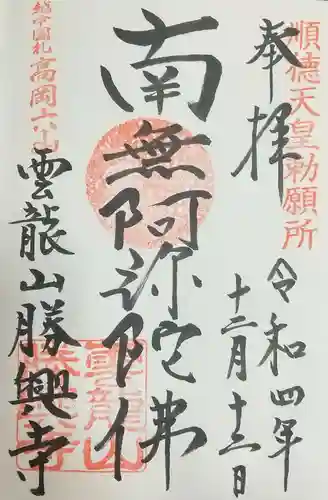 奉拝
順德天皇勅願所
令和四年
十二月十三日
南無阿弥陀佛
越中國札
高岡
雲龍山勝興寺